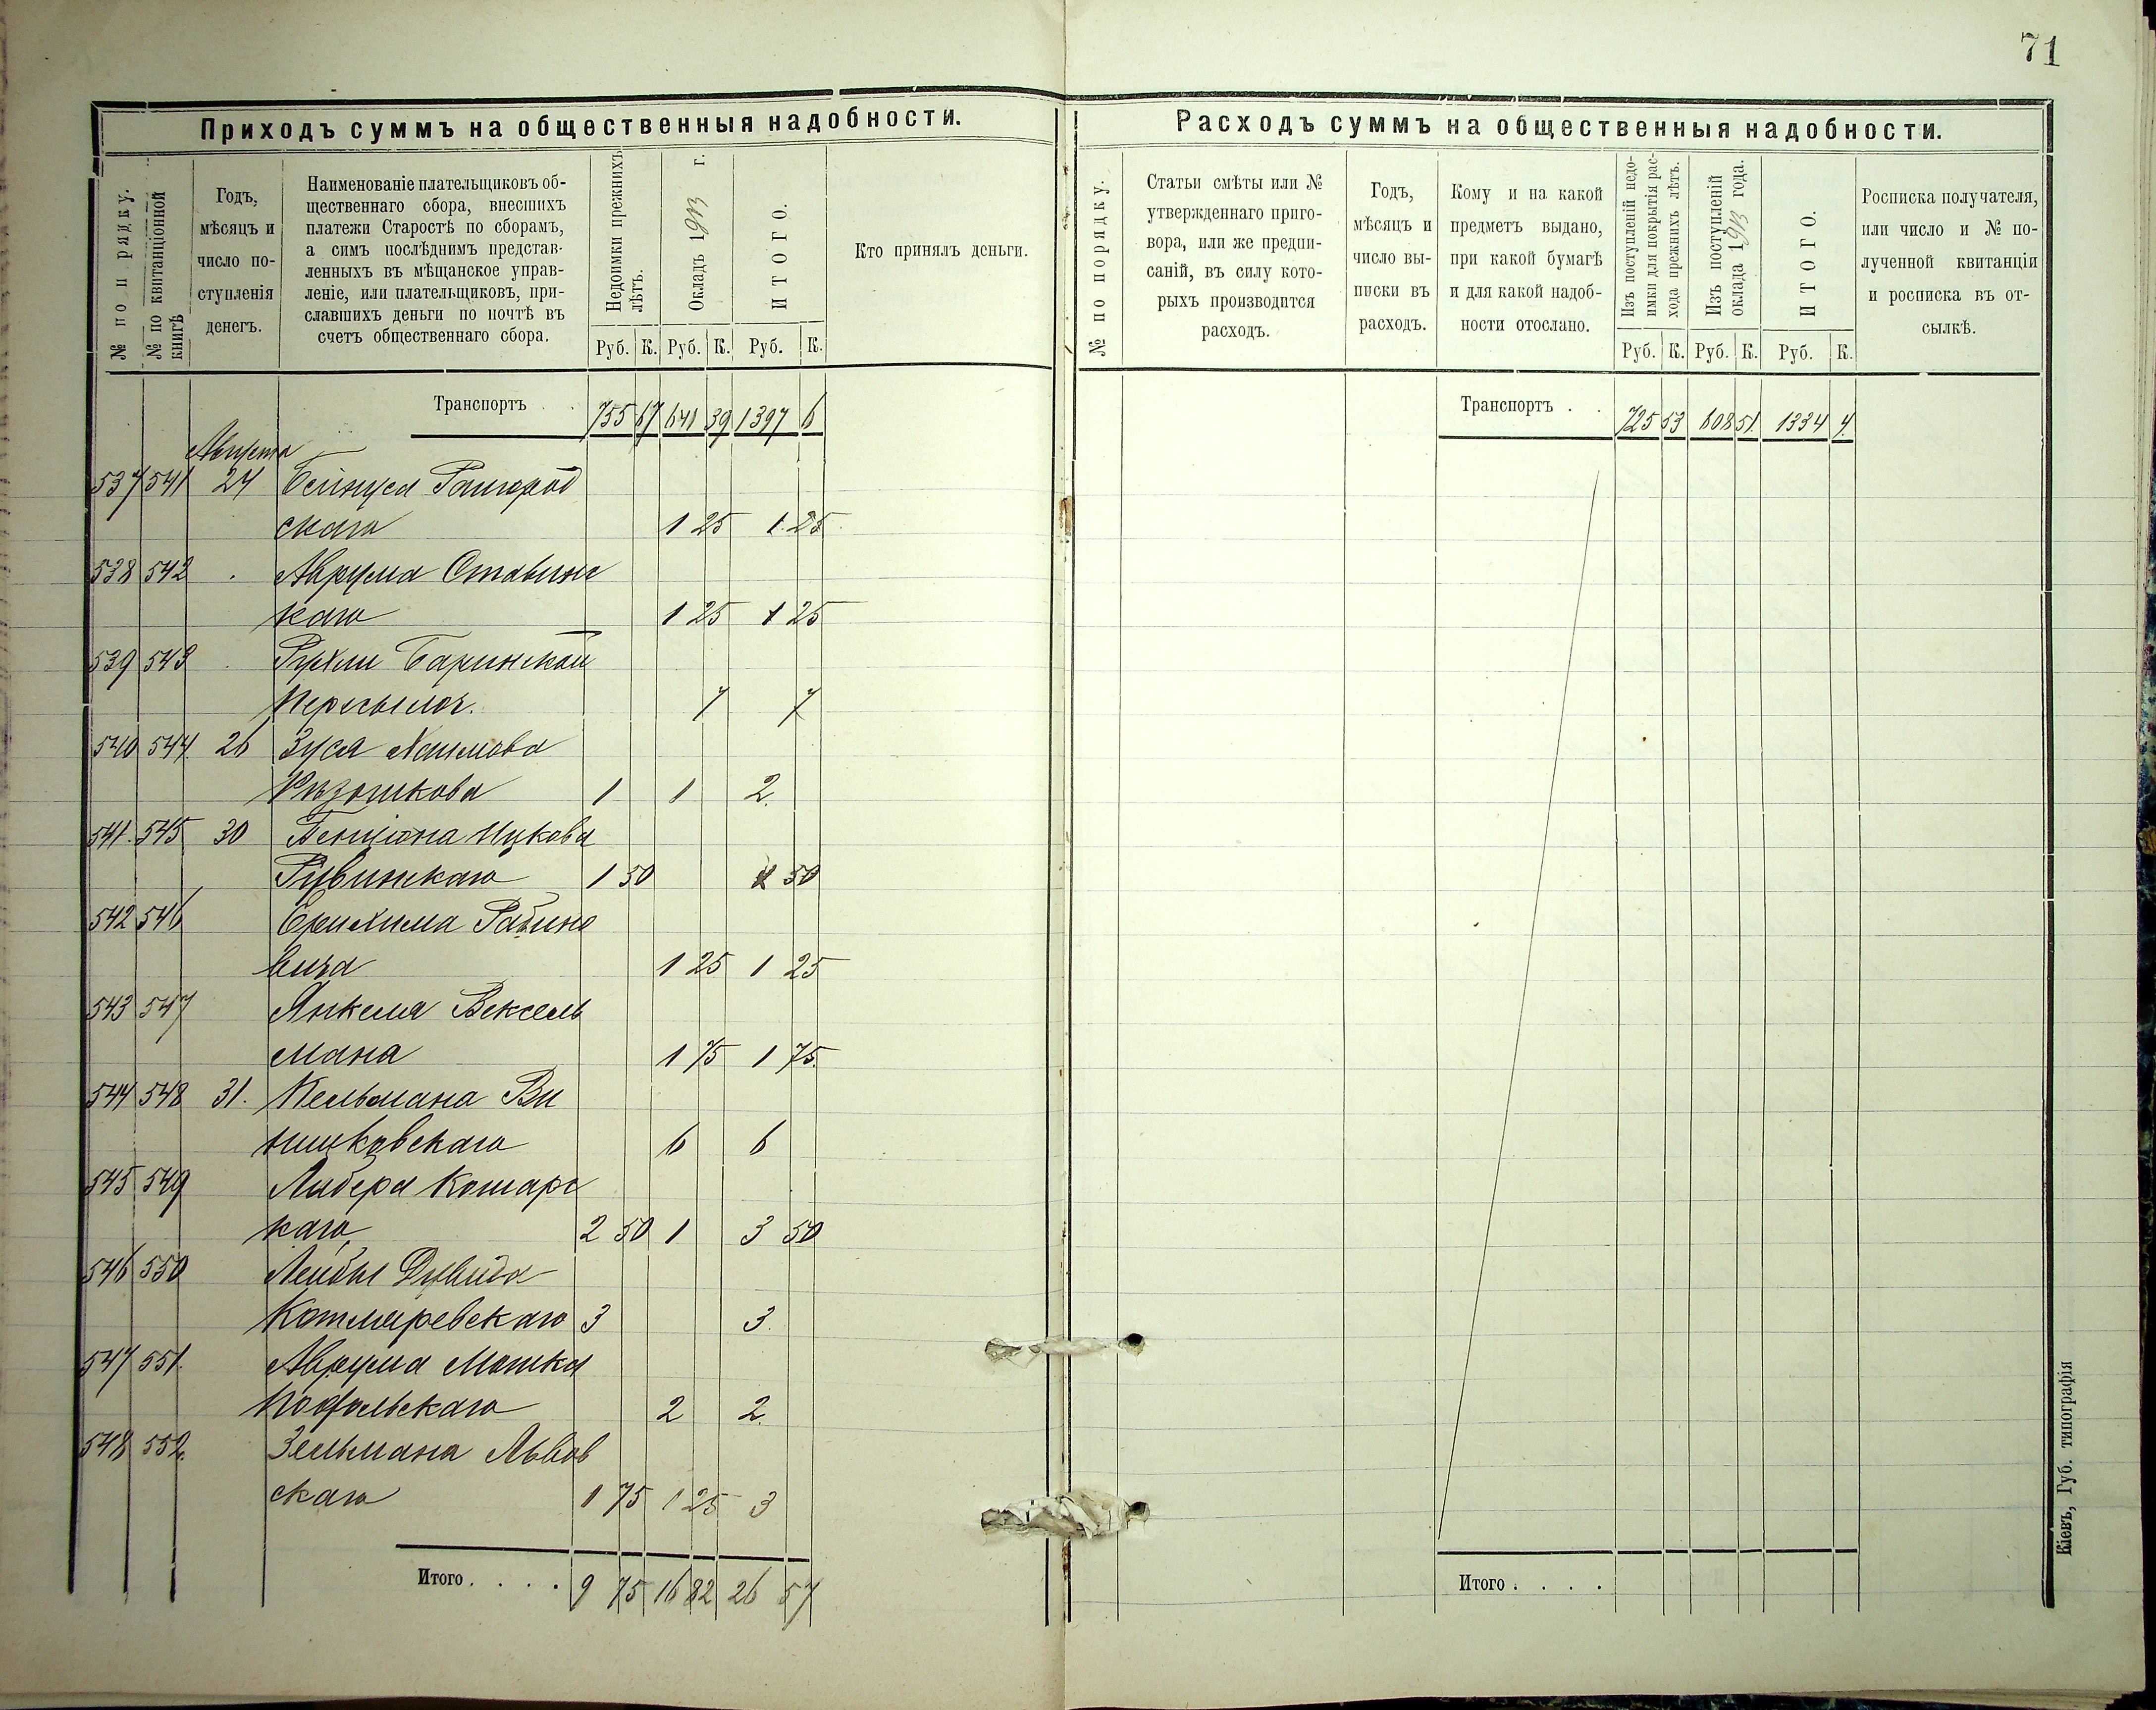 71
Приходъ суммъ на общественныя надобности.
№ по п рядку.
№ по квитанціонной
книгѣ
Годъ,
мѣсяцъ и
число по-
ступленія
денегъ.
Наименованіе плательщиковъ об-
щественнаго сбора, внесшихъ
платежи Старостѣ по сборамъ,
а симъ послѣднимъ представ-
ленныхъ въ мѣщанское управ-
леніе, или плательщиковъ, при-
славшихъ деньги по почтѣ въ
счетъ общественнаго сбора.
Недоимки прежнихъ
лѣтъ.
Окладъ 1913 г.
ИТОГО.
Руб. К. Руб. К. Руб. К.
Кто принялъ деньги.
Транспортъ . . 755 67 641 39 1397 6
Августа
537 541 24 Бейнуса Раигород
скаго 1 25 1 25
538 542 . Аврума Ставинс
каго 1 25 1 25
539 543 . Рухли Баринской
Пересылоч. 7 7
540 544. 26 Зуся Хаимова
1 1 2.
541. 545 30 Бенціона Ицкова
Рувинскаго 1 50 1 50
542 546 Ерихима Рабино
вича 1 25 1 25
543 547 Янкеля Вексель
мана 1 75 1 75.
544 548 31. Кельмана Ви
ницковскаго 6 6
545 549 Либера Кошарс
каго 2 50 1 3 50
546 550 Лейбы Дувида
Котляревскаго 3 3.
547 551. Аврума Мошка
Подольскаго 2 2.
548 552. Зельмана Львов
скаго 1 75 1 25 3
Итого. . . . 9 75 16 82 26 57
Расходъ суммъ на общественныя надобности.
№ по порядку.
Статьи смѣты или №
утвержденнаго приго-
вора, или же предпи-
саній, въ силу кото-
рыхъ производится
расходъ.
Годъ,
мѣсяцъ и
число вы-
писки въ
расходъ.
Кому и на какой
предметъ выдано,
при какой бумагѣ
и для какой надоб-
ности отослано.
Изъ поступленій недо-
имки для покрытія рас-
хода прежнихъ лѣтъ.
Изъ поступленій
оклада 1913 года.
ИТОГО.
Руб. К. Руб. К. Руб. К.
Росписка получателя,
или число и № по-
лученной квитанціи
и росписка въ от-
сылкѣ.
Транспортъ . . 725 53 608 51. 1334 4.
Итого . . . .
Кіевъ, Губ. типографія